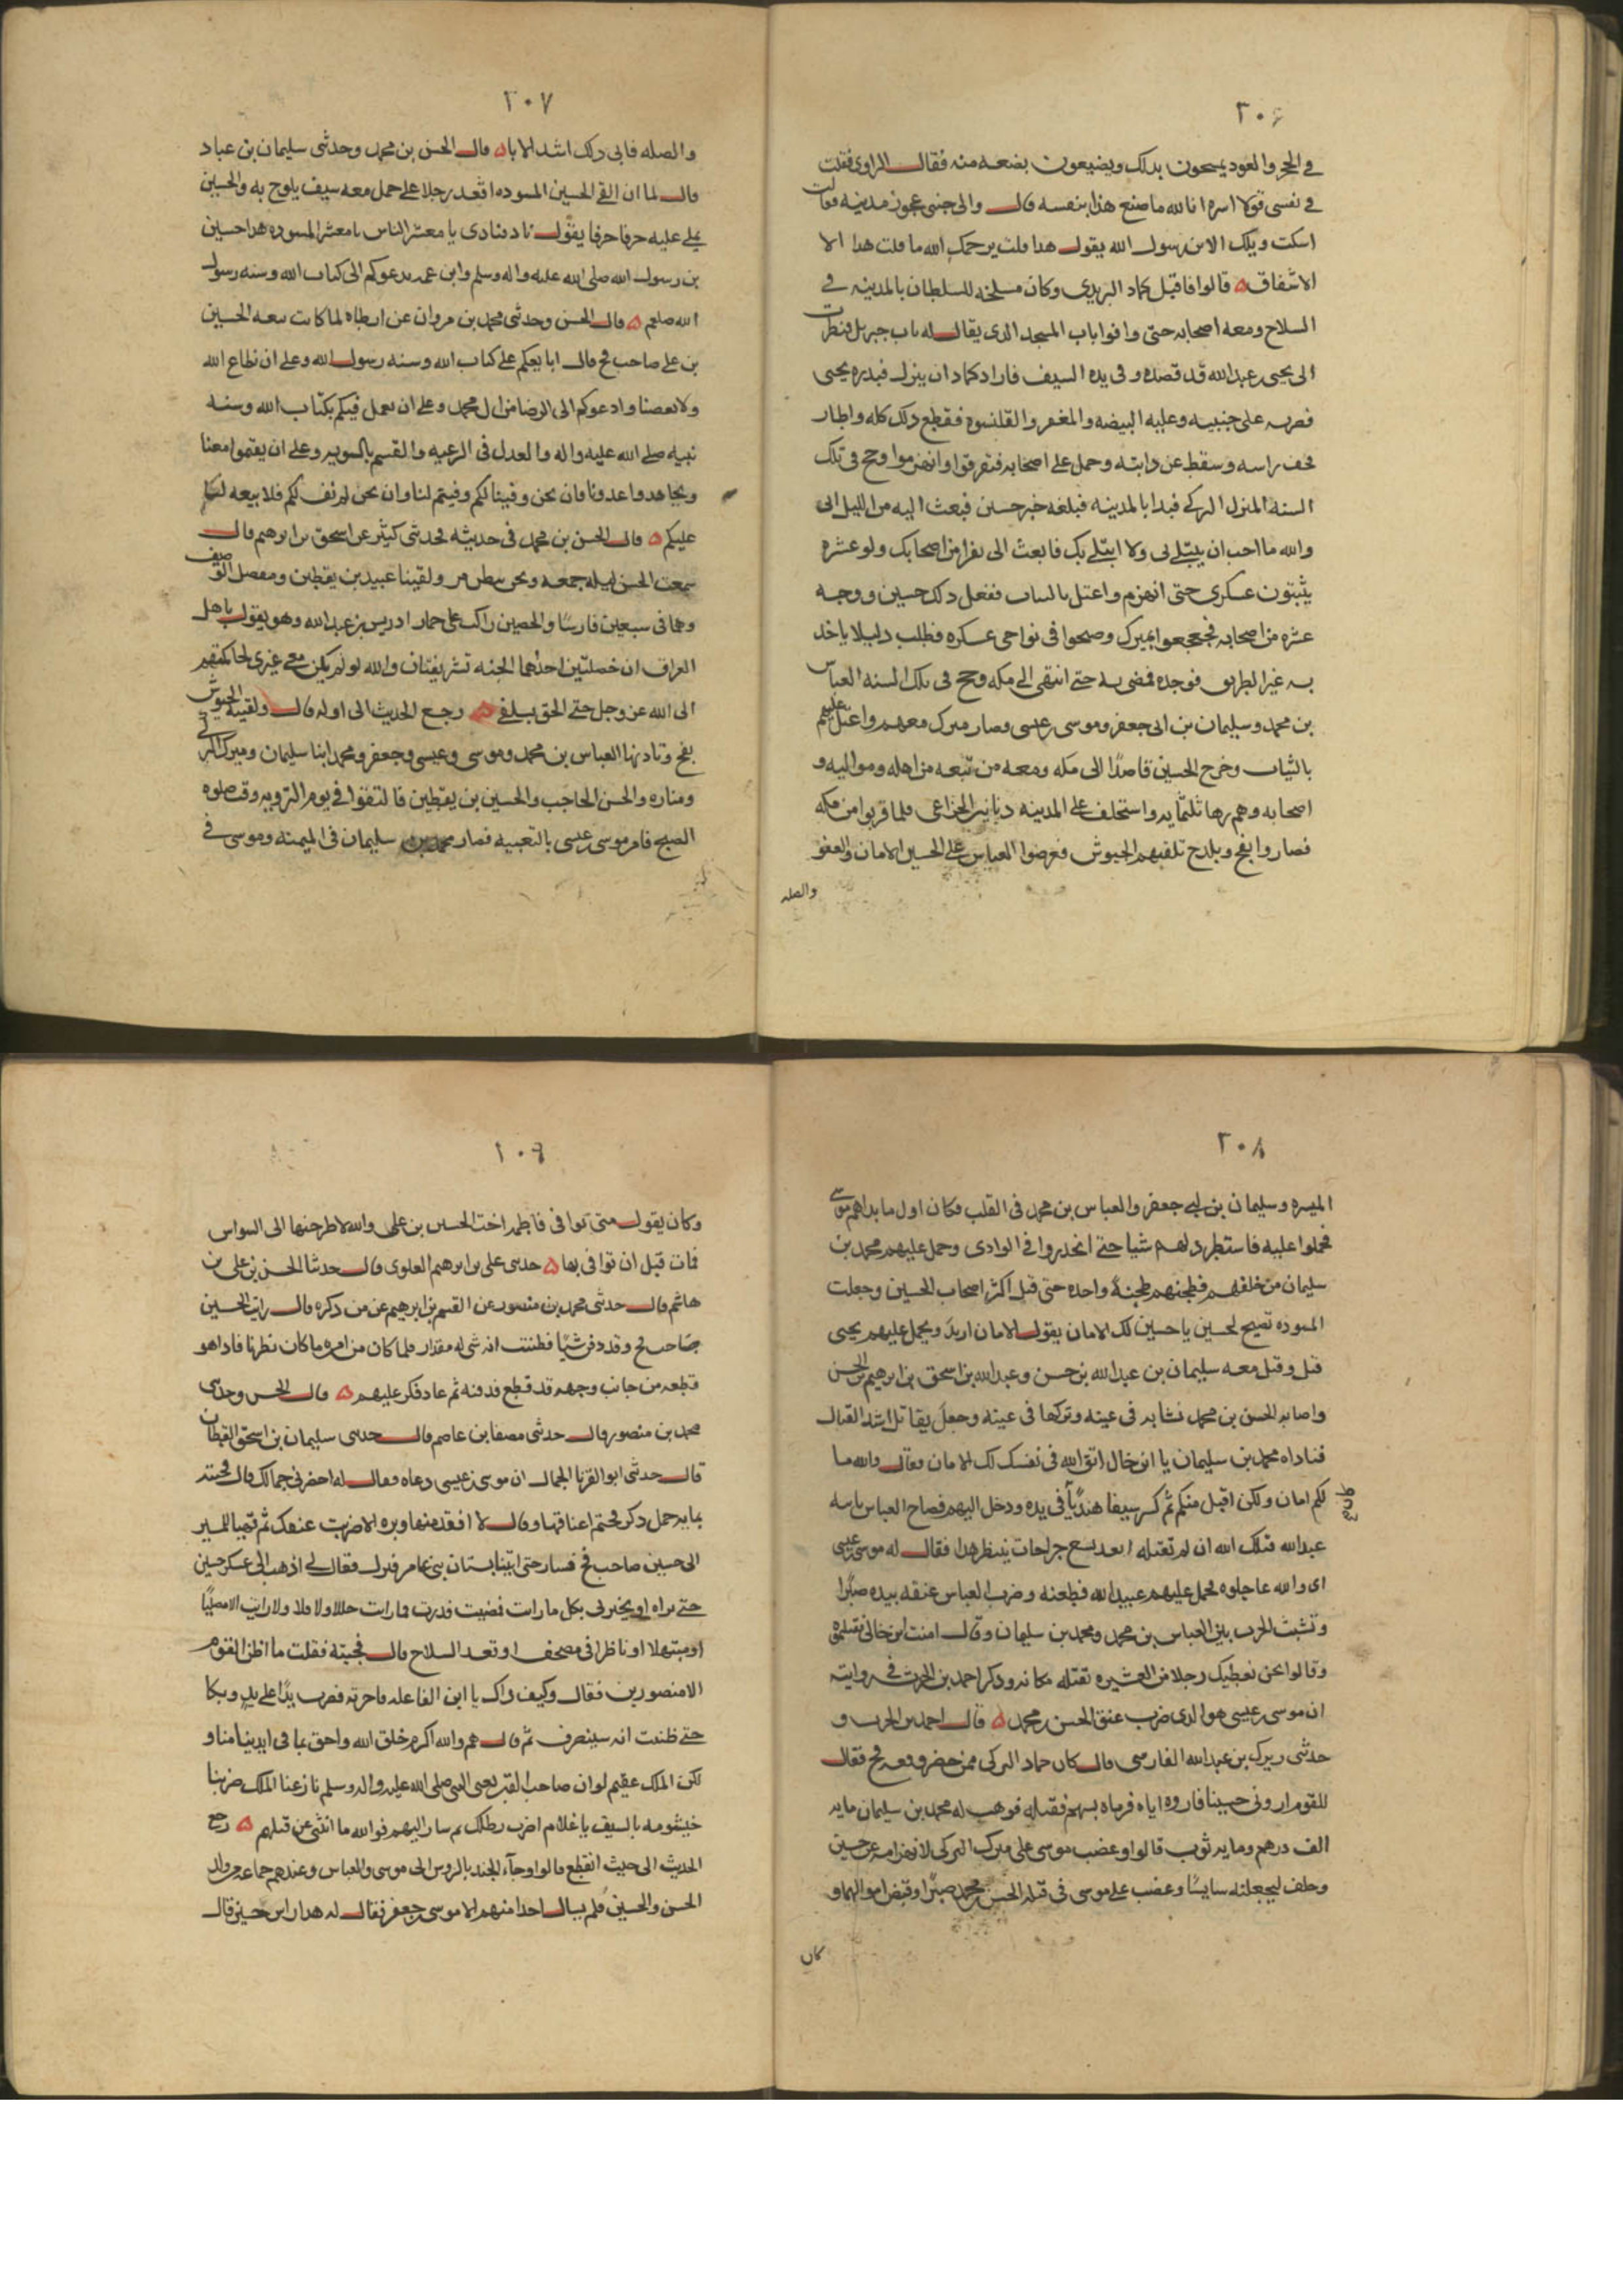 ٢٠٦
في الحجر والعود يسحون بدلك ويضيعون بضعه منه فقال الراوي فقلت
في نفسي قولا اسره انا لله ما صنع هذا بنفسه قال والى جنبي عجوز مدنيه فقالت
اسكت ويلك الابن رسول الله يقول هدا قلت يرحمك الله ما قلت هدا الا
الاشفاق قالوا فاقبل حماد البربدي وكان مسلخه للسلطان بالمدينه في
السلاح ومعه اصحابه حتى وافوا باب المسجد الدي يقال له باب جبريل فنظرت
الى يحيى بن عبد الله قد قصده وفي يده السيف فاراد حماد ان ينزل فبدره يحيى
فضربه على جنبيه وعليه البيضه والمغفر والقلنسوه فقطع دلك كله واطار
قحف راسه وسقط عن دابته وحمل على اصحابه فتفرقوا وانهزموا وحج في تلك
السنه المنزل التركي فبدا بالمدينه فبلغه خبر حسين فبعث اليه من الليل اني
والله ما احب ان يبتلى بي ولا ابتلى بك فابعث الي نفرا من اصحابك ولو عشره
يثبتون عسكري حتى انهزم واعتل بالبيات ففعل دلك حسين ووجه
عشره من اصحابه فجعجعوا بمبرك وصيحوا في نواحي عسكره فطلب دليلا ياخد
به غير الطريق فوجده فمضى به حتى انتهى الى مكه وحج في تلك السنه العباس
بن محمد وسليمان بن ابي جعفر وموسى بن عيسى وصار مبرك معهم واعتل عليهم
بالبيات وخرج الحسين قاصدا الى مكه ومعه من تبعه من اهله ومواليه و
اصحابه وهم زها ثلثمايه واستخلف على المدينه دينار الخزاعي فلما قربوا من مكه
فصاروا بفخ وبلدح تلقتهم الجيوش فعرضوا العباس على الحسين الامان والعفو
والصله
٢٠٧
والصله فابى دلك اشد الابا قال الحسن بن محمد وحدثني سليمان بن عباد
قال لما ان القي الحسين المسوده اقعد رجلا على جمل معه سيف يلوح به والحسين
يملي عليه حرفا حرفا يقول ناد فنادى يا معشر الناس يا معشر المسوده هدا حسين
بن رسول الله صلى الله عليه واله وسلم وابن عمه يدعوكم الى كتاب الله وسنه رسول
الله صلعم قال الحسن وحدثني محمد بن مروان عن ارطاه لما كانت بيعه الحسين
بن علي صاحب فخ قال ابايعكم على كتاب الله وسنه رسول الله وعلى ان نطاع الله
ولا يعصا وادعوكم الى الرضا من ال محمد وعلى ان نعمل فيكم بكتاب الله وسنه
نبيه صلى الله عليه واله والعدل في الرعيه والقسم بالسويه وعلى ان يقيموا معنا
ويجاهدوا عدونا فان نحن وفينا لكم وفيتم لنا وان نحن لم نف لكم فلا بيعه لنا
عليكم قال الحسن بن محمد في حديثه فحدثني كثير عن اسحق بن ابرهيم قال
سمعت الحسن ليله جمعه ونحن ببطن مر ولقينا عبيد بن يقطين ومفضل الوصيف
وهما في سبعين فارسا والحسين راكب على حمار ادريس بن عبد الله وهو يقول يا اهل
العراق ان خصلتين احدهما الجنه لشريفتان والله لو لم يكن معي غيري لحاكمتهم
الى الله عز وجل حتى الحق بسلفي رجع الحديث الى اوله قال ولقيته الجيوش
بفخ وقادتها العباس بن محمد وموسى وعيسى وجعفر ومحمد ابنا سليمان ومبرك التركي
ومناره والحسن الحاجب والحسين بن يقطين فالتقوا في يوم الترويه وقت صلوه
الصبح فامر موسى بن عيسى بالتعبيه فصار محمد بن سليمان في الميمنه وموسى في
٢٠٨
الميسره وسليمان بن ابي جعفر والعباس بن محمد في القلب فكان اول ما بداهم موسى
فحملوا عليه فاستطرد لهم شيا حتى انحدروا في الوادي وحمل عليهم محمد بن
سليمان من خلفهم فطحنهم طحنة واحده حتى قتل اكثر اصحاب الحسين وجعلت
المسوده تصيح لحسين يا حسين لك الامان يقول لا امان اريد ويحمل عليهم يحيى
قتل وقتل معه سليمان بن عبد الله بن حسن وعبد الله بن اسحق بن ابرهيم بن الحسن
واصابه الحسن بن محمد نشابه في عينه وتركها في عينه وجعل يقاتل اشد القتال
فناداه محمد بن سليمان يا ابن خال اتق الله في نفسك لك الامان فقال والله ما
لكم امان ولكن اقبل منكم ثم كسر سيفا هنديا في يده ودخل اليهم فصاح العباس بابنه
عبد الله قتلك الله ان لم تقتله ابعد تسع جراحات ينتظر هدا فقال له موسى بن عيسى
اي والله عاجلوه فحمل عليهم عبيد الله فطعنه وضرب العباس عنقه بيده صبرا
ونشبت الحرب بين العباس بن محمد ومحمد بن سليمان وقال امنت ابن خالي فقتلتموه
وقالوا نحن نعطيك رجلا من العشيره تقتله مكانه ودكر احمد بن الحرث في روايته
ان موسى بن عيسى هو الدي ضرب عنق الحسن بن محمد قال احمد بن الحرث و
حدثني يزيد بن عبد الله الفارسي قال كان حماد التركي ممن حضر وقعه فخ فقال
للقوم اروني حسينا فاروه اياه فرماه بسهم فقتله فوهب له محمد بن سليمان مايه
الف درهم ومايه ثوب قالوا وغضب موسى على مبرك التركي لانهزامه عن حسين
وحلف ليجعلنه سايسا وغضب على موسى في قتله الحسن بن محمد صبرا وقبض اموالهما و
كان
٢٠٩
وكان يقول متى توافي فاطمه اخت الحسين بن علي والله لاطرحنها الى السواس
فمات قبل ان توافي بها حدثني علي بن ابرهيم العلوي قال حدثنا الحسن بن علي بن
هاشم قال حدثني محمد بن منصور عن القسم بن ابرهيم عن من دكره قال رايت الحسين
صاحب فخ وقد دفن شيا فظننت انه شي له مقدار فلما كان من امره ما كان نظرنا فادا هو
قطعه من جانب وجهه قد قطع فدفنه ثم عاد فكر عليهم قال الحسن وحدثني
محمد بن منصور قال حدثني مصفا بن عاصم قال حدثني سليمان بن اسحق القطان
قال حدثني ابو القرنا الجمال ان موسى بن عيسى دعاه فقال له احضرني جمالك قال فجيته
بمايه جمل دكر فختم اعناقها وقال لا افقد منها وبره الا ضربت عنقك ثم تهيا للمسير
الى حسين صاحب فخ فسار حتى اتينا بستان بني عامر فنزل فقال لي اذهب الى عسكر حسين
حتى تراه او يخبرني بكل ما رايت فمضيت فدرت فما رايت خللا ولا فلا ولا رايت الا مصليا
او مبتهلا او ناظرا في مصحف او تعد السلاح قال فجيته فقلت ما اظن القوم
الا منصورين فقال وكيف داك يا ابن الفاعله فاخبرته فضرب يدا على يد وبكا
حتى ظننت انه سينصرف ثم قال هم والله اكرم خلق الله واحق بما في ايدينا منا و
لكن الملك عقيم لو ان صاحب القبر يعني النبي صلى الله عليه واله وسلم نازعنا الملك ضربنا
خيشومه بالسيف يا غلام اضرب بطبلك ثم سار اليهم فوالله ما انثنى عن قتلهم رجع
الحديث الى حيث انقطع قالوا وجاء الجند بالروس الى موسى والعباس وعندهم جماعه من ولد
الحسن والحسين فلم يسال احدا منهم الا موسى بن جعفر فقال له هدا راس حسين قال